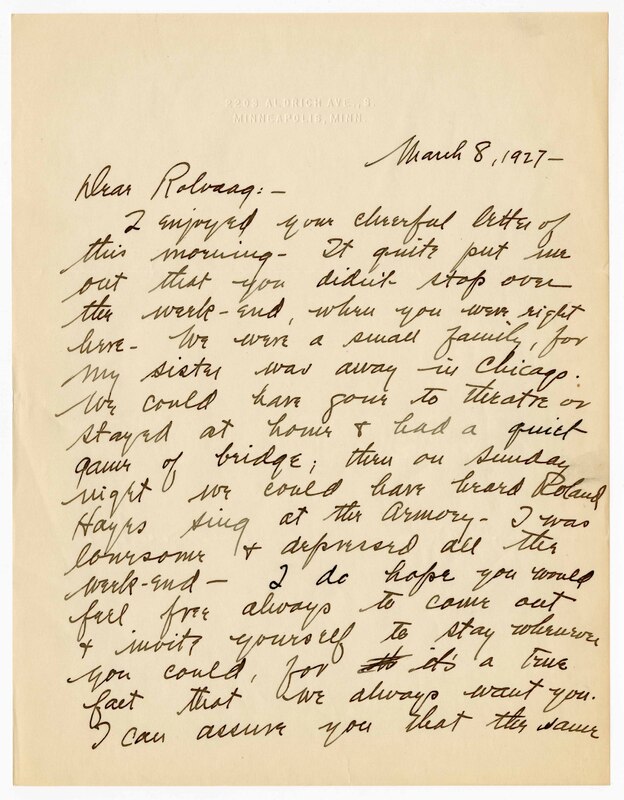 2203 ALDRICH AVE., S.
MINNEAPOLIS, MINN.
March 8, 1927-
Dear Rolvaag:-
I enjoyed your cheerful letter of
this morning- It quite put me
out that you didn't stop over
the week-end, when you were right
here- We were a small family, for
my sister was away in Chicago.
We could have gone to theatre or
stayed at home & had a quiet
game of bridge; then on Sunday
night we could have heard Roland
Hayes sing at the Armory- I was
lonesome & depressed all the
week-end- I do hope you would
feel free always to come out
& invite yourself to stay whenever
you could, for it's a true
fact that we always want you.
I can assure you that the same